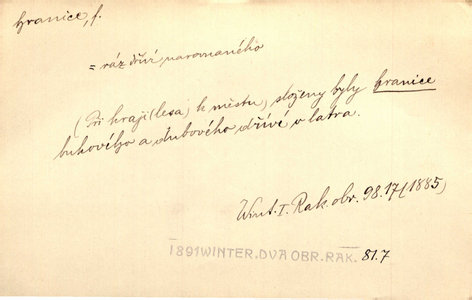 hranice, f.
= ráz dříví narovnaného
(Při kraji (lesa) k městu, složeny byly hranice
bukového a dubového dříví v latra.
Wint. I. Rak. obr. 98.17 (1885)
1891WINTER.DVA OBR. RAK. 81.7